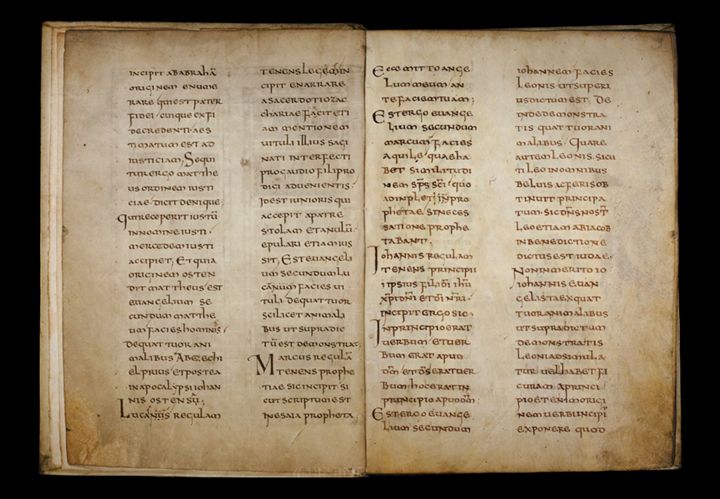 INCIPIT AB ABRAHĀ
ORIGINEM ENUME
RARE QUI EST PATER
FIDEI · CUIQUE EX FI
DE CREDENTI AES
TIMATUM EST AD
IUSTICIAM; SEQUI
TUR ERGO MATTHE
US ORDINEM IUSTI
CIAE · DICIT DENIQUE;
QUI RECEPERIT IUSTŪ
IN NOMINE IUSTI ·
MERCEDEM IUSTI
ACCIPIET; ET QUIA
ORIGINEM OSTEN
DIT MATTHEUS · EST
EUANGELIUM SE
CUNDUM MATTHE
UM FACIES HOMINIS ·
DE QUATTUOR ANI
MALIBUS AB EZECHI
EL PRIUS ET POSTEA
IN APOCALYPSI IOHAN
NIS OSTENSŪ;
LUCANUS REGULAM
TENENS LEGEM IN
CIPIT ENARRARE
A SACERDOTIO ZAC
CHARIAE FACIT ETI
AM MENTIONEM
UITULI ILLIUS SAGI
NATI INTERFECTI
PRO GAUDIO FILII PRO
DIGI ADUENIENTIS ·
ID EST IUNIORIS QUI
ACCEPIT A PATRE
STOLAM ET ANULŪ ·
EPULARI ETIAM IUS
SIT; EST EUANGELI
UM SECUNDUM LU
CANUM FACIES UI
TULI DE QUATTUOR
SCILICET ANIMALI
BUS UT SUPRA DIC
TŪ EST DEMONSTRAT;
MARCUS REGULĀ
TENENS PROPHE
TIAE SIC INCIPIT SI
CUT SCRIPTUM EST
IN ESAIA PROPHETA
ECCE MITTO ANGE
LUM MEUM AN
TE FACIEM TUAM;
EST ERGO EUANGE
LIUM SECUNDUM
MARCUM FACIES
AQUILE · QUAE HA
BET SIMILITUDI
NEM SPS SCI · QUO
ADINPLETI SUNT PRO
PHETAE · SINE CES
SATIONE PROPHE
TABANT ·
IOHANNIS REGULAM
TENENS PRINCIPII
IPSIUS FILII DI IHU
XPI DNI ET DI NRI ·
INCIPIT ERGO SIC ·
IN PRINCIPIO ERAT
UERBUM ET UER
BUM ERAT APUD
DM ET DS ERAT UER
BUM HOC ERAT IN
PRINCIPIO APUD DM;
EST ERGO EUANGE
LIUM SECUNDUM
IOHANNEM FACIES
LEONIS UT SUPERI
US DICTUM EST · DE
INDE DEMONSTRA
TIS QUATTUOR ANI
MALIBUS · QUARE
AUTEM LEONIS · SICU
TI LEO IN OMNIBUS
BELUIS AC FERIS OB
TINUIT PRINCIPA
TUM · SIC DNS NOST
LEO ETIAM AB IACOB
IN BENEDICTIONE
DICTUS EST IUDAE ·
NON INMERITO IO
IOHANNIS EUAN
GELISTA EX QUAT
TUOR ANIMALIBUS
UT SUPRA DICTUM
DEMONSTRATIS
LEONI ADSIMILA
TUR UEL HABET FI
GURAM A PRINCI
PIO ETENIM ORIGI
NEM UERBI INCIPĪ
EXPONERE QUOD